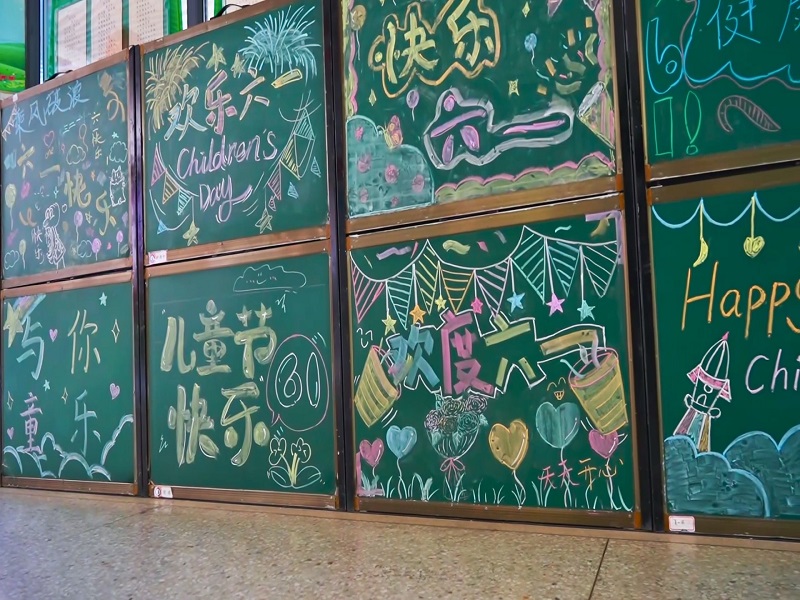 乘风破浪
六一
快乐
欢乐六一
Children's
Day
快乐
六一
与你
童乐
儿童节
快乐
61
欢度六一
天天开心
Happy
Chi